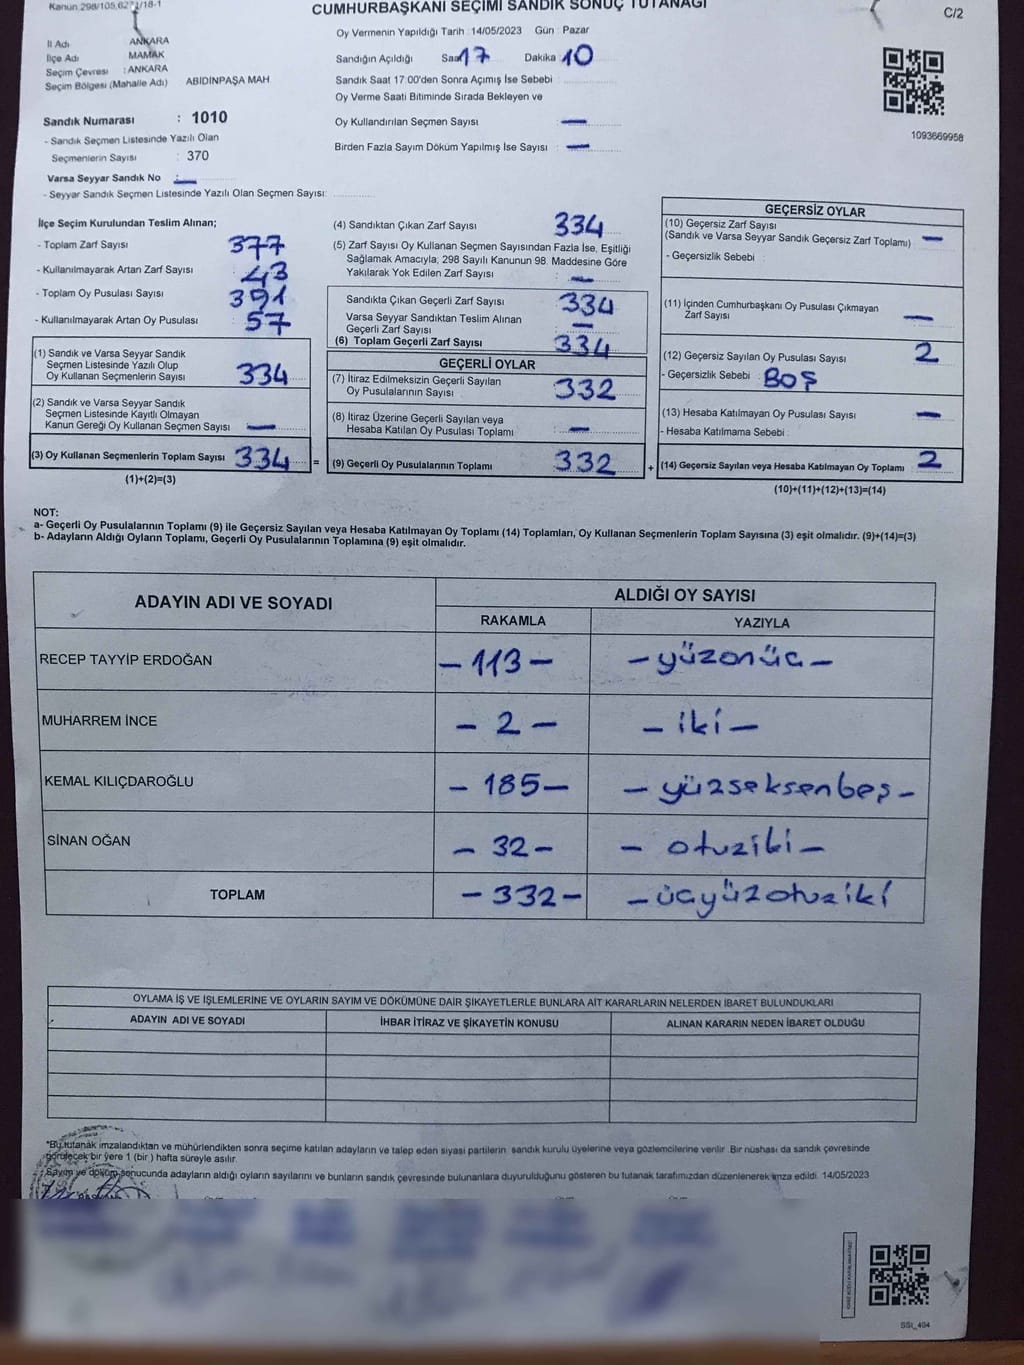 Kanun 298/105,62
CUMHURBAŞKANI SEÇİMİ SANDIK SONUÇ TUTANAĞI
C/2
İl Adı ANKARA
İlçe Adı MAMAK
Seçim Çevresi : ANKARA
Seçim Bölgesi (Mahalle Adı) ABIDINPAŞA MAH
Oy Vermenin Yapıldığı Tarih : 14/05/2023 Gün : Pazar
Sandığın Açıldığı Saat 17 Dakika 10
Sandık Saat 17.00'den Sonra Açılmış İse Sebebi
Oy Verme Saati Bitiminde Sırada Bekleyen ve
Oy Kullandırılan Seçmen Sayısı : —
Birden Fazla Sayım Döküm Yapılmış İse Sayısı : —
1093669958
Sandık Numarası : 1010
- Sandık Seçmen Listesinde Yazılı Olan
Seçmenlerin Sayısı : 370
Varsa Seyyar Sandık No : —
- Seyyar Sandık Seçmen Listesinde Yazılı Olan Seçmen Sayısı:
İlçe Seçim Kurulundan Teslim Alınan;
- Toplam Zarf Sayısı : 377
- Kullanılmayarak Artan Zarf Sayısı : 43
- Toplam Oy Pusulası Sayısı : 391
- Kullanılmayarak Artan Oy Pusulası : 57
(1) Sandık ve Varsa Seyyar Sandık
Seçmen Listesinde Yazılı Olup
Oy Kullanan Seçmenlerin Sayısı : 334
(2) Sandık ve Varsa Seyyar Sandık
Seçmen Listesinde Kayıtlı Olmayan
Kanun Gereği Oy Kullanan Seçmen Sayısı : —
(3) Oy Kullanan Seçmenlerin Toplam Sayısı : 334
(1)+(2)=(3)
=
(4) Sandıktan Çıkan Zarf Sayısı : 334
(5) Zarf Sayısı Oy Kullanan Seçmen Sayısından Fazla İse, Eşitliği
Sağlamak Amacıyla, 298 Sayılı Kanunun 98. Maddesine Göre
Yakılarak Yok Edilen Zarf Sayısı : —
Sandıkta Çıkan Geçerli Zarf Sayısı : 334
Varsa Seyyar Sandıktan Teslim Alınan
Geçerli Zarf Sayısı : —
(6) Toplam Geçerli Zarf Sayısı : 334
GEÇERLİ OYLAR
(7) İtiraz Edilmeksizin Geçerli Sayılan
Oy Pusulalarının Sayısı : 332
(8) İtiraz Üzerine Geçerli Sayılan veya
Hesaba Katılan Oy Pusulası Toplamı : —
(9) Geçerli Oy Pusulalarının Toplamı : 332
+
GEÇERSİZ OYLAR
(10) Geçersiz Zarf Sayısı
(Sandık ve Varsa Seyyar Sandık Geçersiz Zarf Toplamı) : —
- Geçersizlik Sebebi :
(11) İçinden Cumhurbaşkanı Oy Pusulası Çıkmayan
Zarf Sayısı : —
(12) Geçersiz Sayılan Oy Pusulası Sayısı : 2
- Geçersizlik Sebebi : BOŞ
(13) Hesaba Katılmayan Oy Pusulası Sayısı : —
- Hesaba Katılmama Sebebi :
(14) Geçersiz Sayılan veya Hesaba Katılmayan Oy Toplamı : 2
(10)+(11)+(12)+(13)=(14)
NOT:
a- Geçerli Oy Pusulalarının Toplamı (9) ile Geçersiz Sayılan veya Hesaba Katılmayan Oy Toplamı (14) Toplamları, Oy Kullanan Seçmenlerin Toplam Sayısına (3) eşit olmalıdır. (9)+(14)=(3)
b- Adayların Aldığı Oyların Toplamı, Geçerli Oy Pusulalarının Toplamına (9) eşit olmalıdır.
ADAYIN ADI VE SOYADI
ALDIĞI OY SAYISI
RAKAMLA YAZIYLA
RECEP TAYYİP ERDOĞAN — 113 — — yüzonüç —
MUHARREM İNCE — 2 — — iki —
KEMAL KILIÇDAROĞLU — 185 — — yüzseksenbeş —
SİNAN OĞAN — 32 — — otuziki —
TOPLAM — 332 — — üçyüzotuziki
OYLAMA İŞ VE İŞLEMLERİNE VE OYLARIN SAYIM VE DÖKÜMÜNE DAİR ŞİKAYETLERLE BUNLARA AİT KARARLARIN NELERDEN İBARET BULUNDUKLARI
ADAYIN ADI VE SOYADI İHBAR İTİRAZ VE ŞİKAYETİN KONUSU ALINAN KARARIN NEDEN İBARET OLDUĞU
*Bu tutanak imzalandıktan ve mühürlendikten sonra seçime katılan adayların ve talep eden siyasi partilerin sandık kurulu üyelerine veya gözlemcilerine verilir. Bir nüshası da sandık çevresinde
görülecek bir yere 1 (bir) hafta süreyle asılır.
Sayım ve döküm sonucunda adayların aldığı oyların sayılarını ve bunların sandık çevresinde bulunanlara duyurulduğunu gösteren bu tutanak tarafımızdan düzenlenerek imza edildi. 14/05/2023